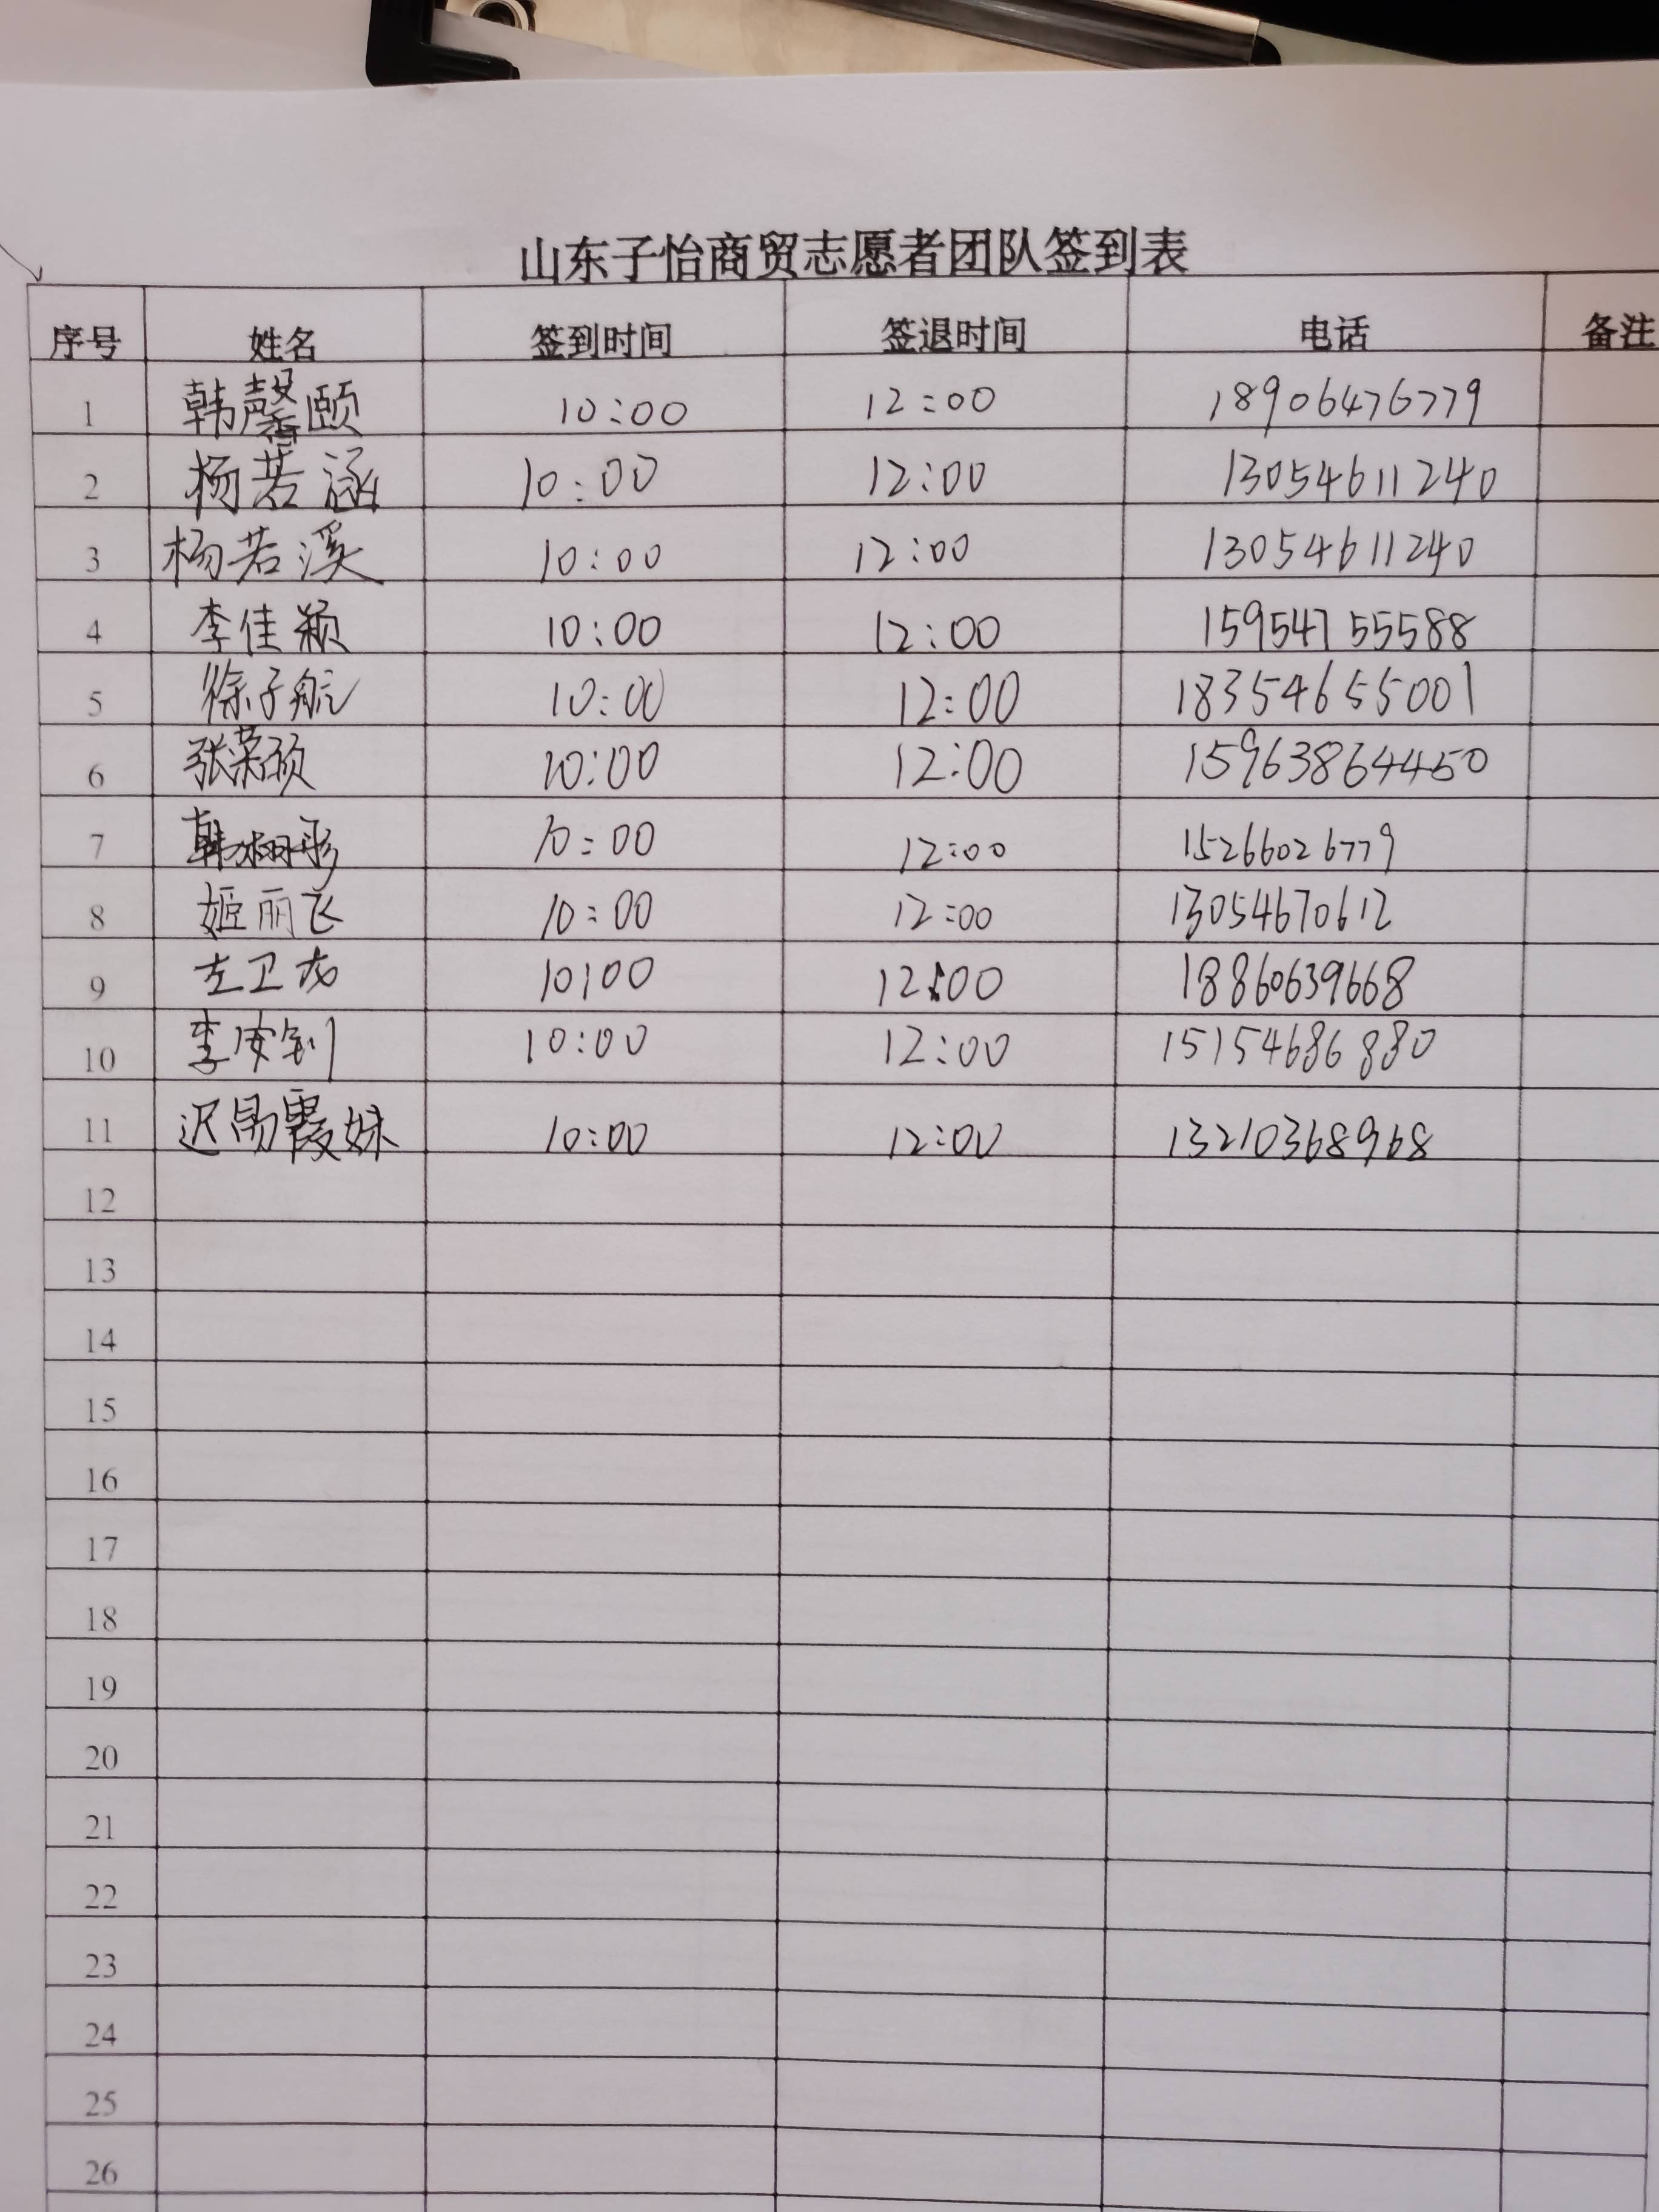 山东子怡商贸志愿者团队签到表
序号 姓名 签到时间 签退时间 电话 备注
1 韩馨颐 10:00 12:00 18906476779
2 杨若涵 10:00 12:00 13054611240
3 杨若溪 10:00 12:00 13054611240
4 李佳颖 10:00 12:00 15954755588
5 徐子航 10:00 12:00 18354655001
6 张荣硕 10:00 12:00 15963864450
7 韩栩彤 10:00 12:00 15266026779
8 姬丽飞 10:00 12:00 13054670612
9 左卫龙 10:00 12:00 18860639668
10 李安钊 10:00 12:00 15154686880
11 迟易霞妹 10:00 12:00 13210368968
12
13
14
15
16
17
18
19
20
21
22
23
24
25
26